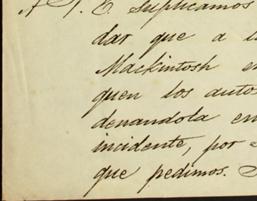 A V. E. suplicamos
dar que a l
Mackintosh e
quen los auto
denandola en
incidente, por
que pedimos.